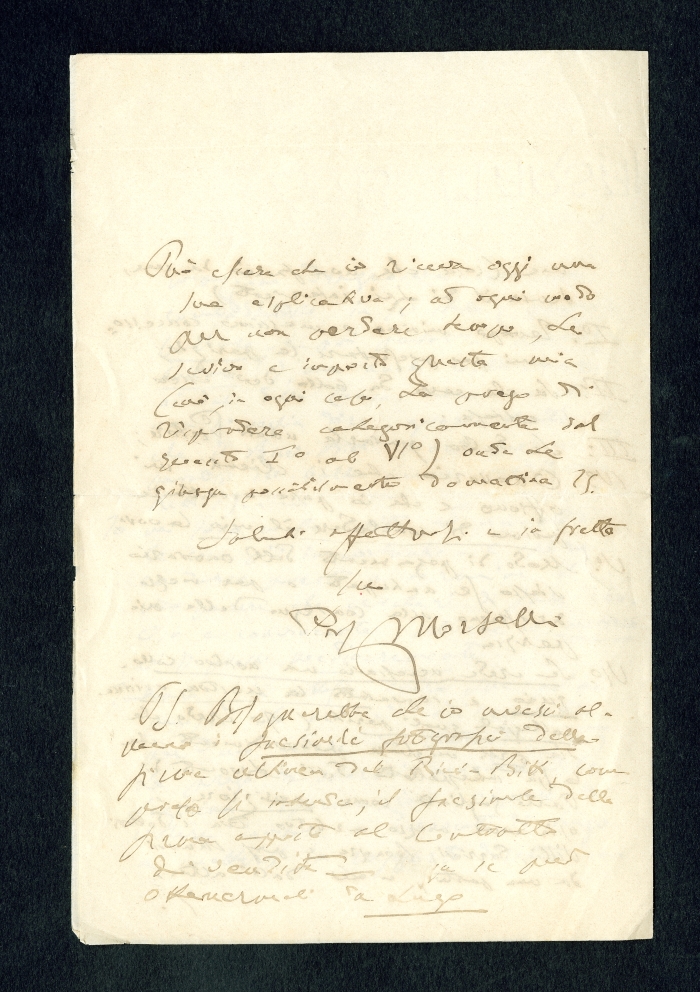 Può essere che io riceva oggi una
sua esplicativa; ad ogni modo
per non perdere tempo, Le
scrivo e imposto questa mia
(così, in ogni caso, La prego di
rispondere categoricamente dal
quesito I° al VI°) onde che
giunga possibilmente domattina 25.
Saluti affettuosi e in fretta
Suo
Prof Morselli
PS. Bisognerebbe che io avessi al-
meno i facsimile fotografici della
firma del Pini-Bitt, come
pure si intende, il facsimile della
firma apposta al Contratto
di vendita se si può
ottenermeli da Lugo